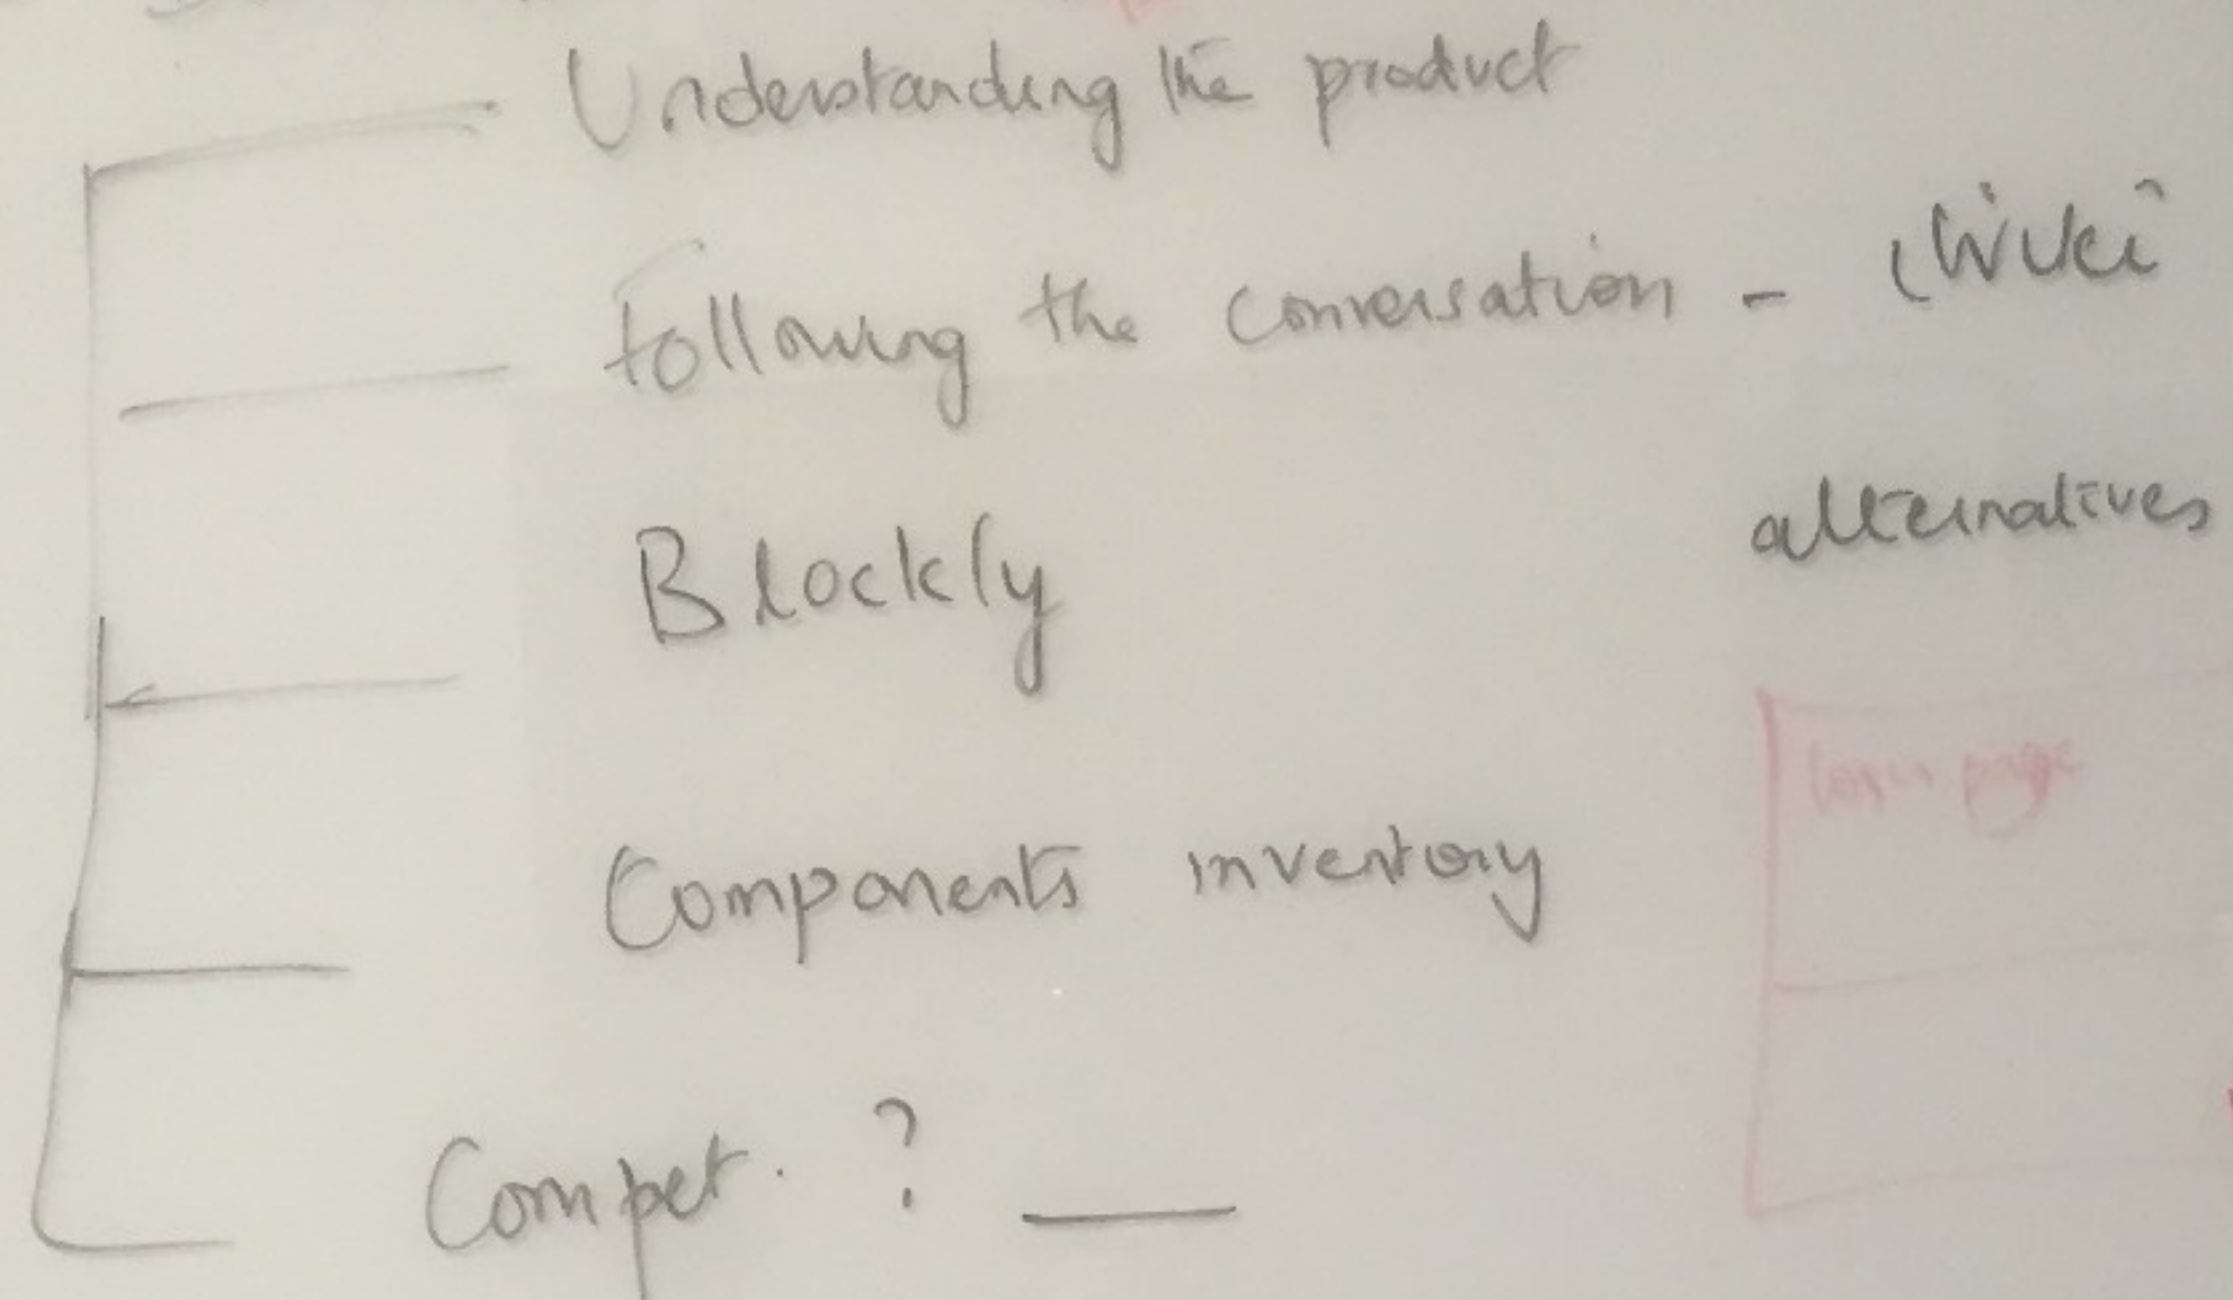 Understanding the product
following the conversation - Wiki
alternatives
Blockly
Components inventory
page
Compet. ? __